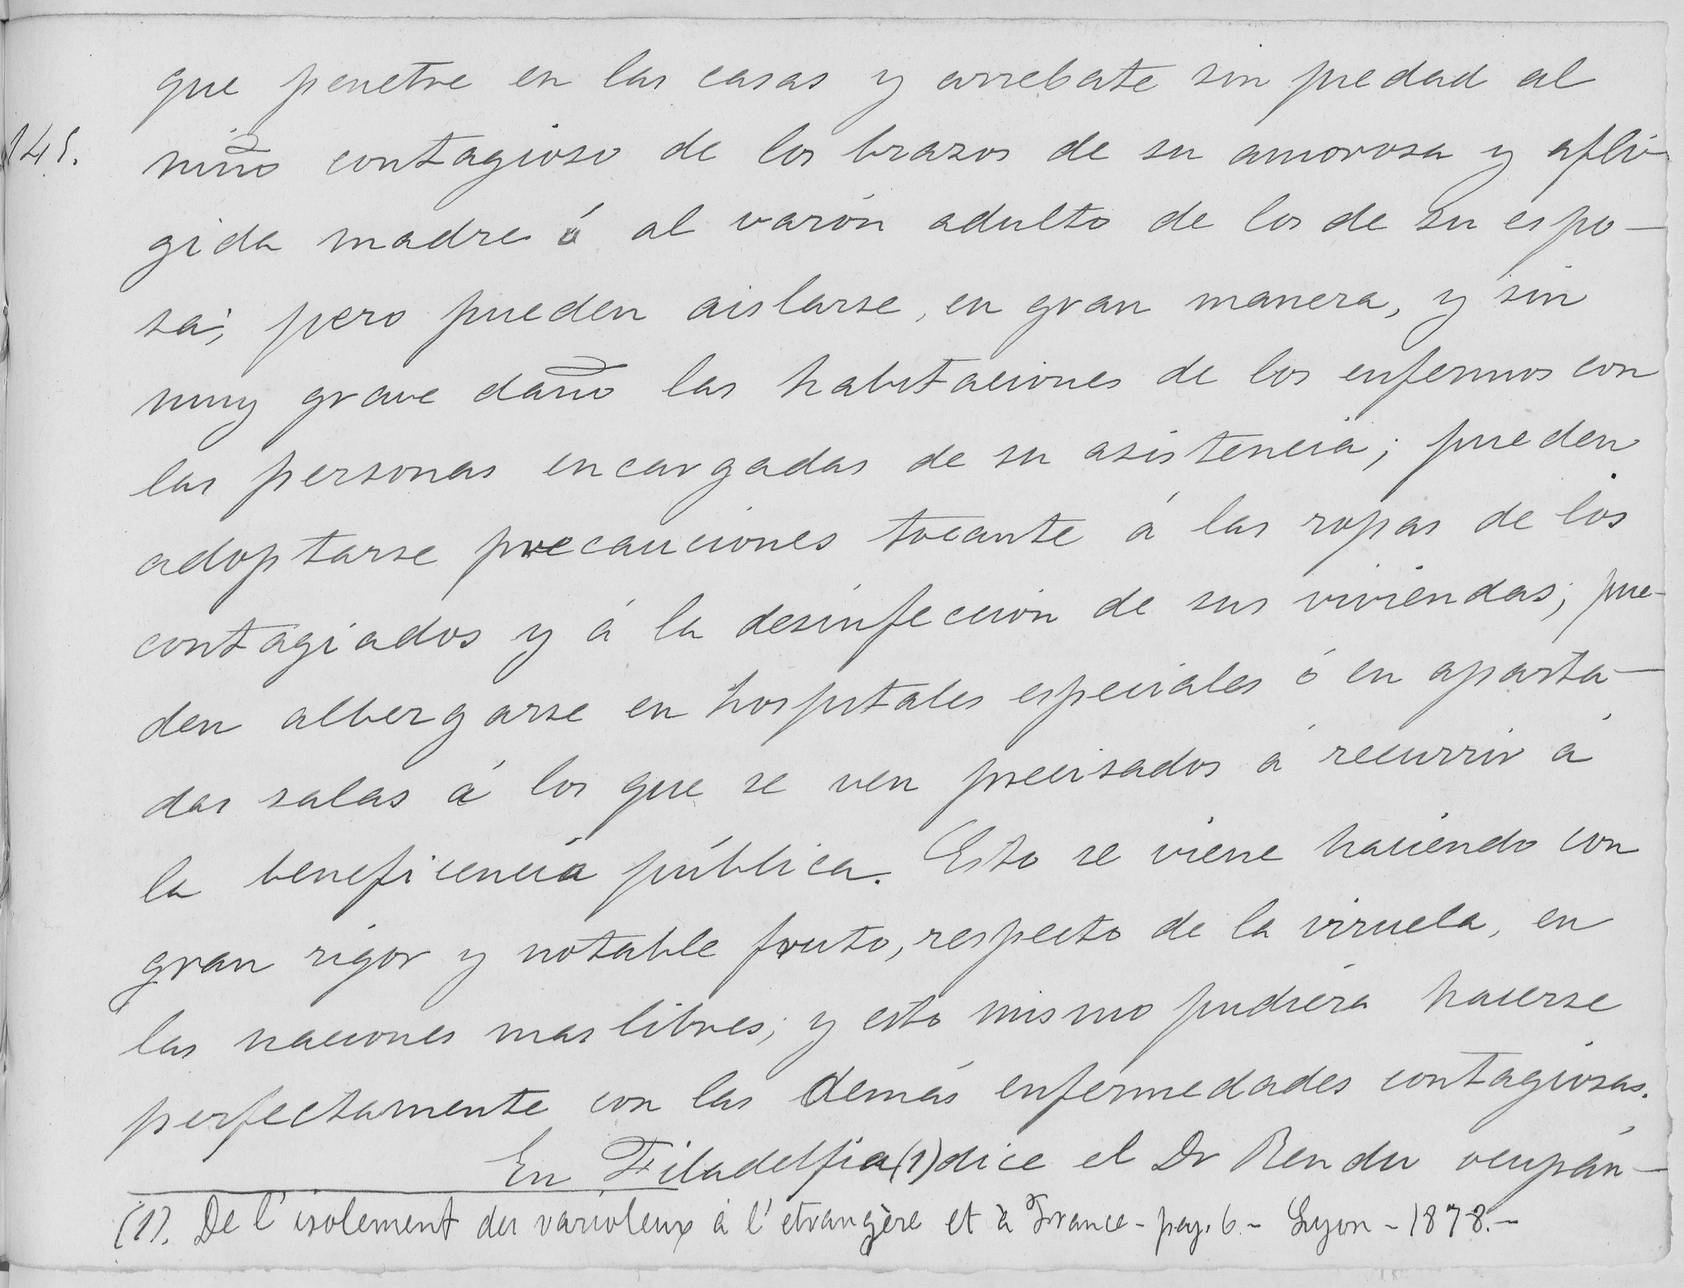 que penetre en las casas y arrebate sin piedad al
145.
niño contagioso de los brazos de su amorosa y afli-
gida madre ó al varón adulto de los de su espo-
sa; pero pueden aislarse, en gran manera, y sin
muy grave daño las habitaciones de los enfermos con
las personas encargadas de su asistencia; pueden
adoptarse precauciones tocante á las ropas de los
contagiados y á la desinfección de sus viviendas; pue-
den albergarse en hospitales especiales ó en aparta-
das salas á los que se ven precisados á recurrir á
la beneficencia pública. Esto se viene haciendo con
gran rigor y notable fruto, respecto de la viruela, en
las naciones mas libres; y esto mismo pudiera hacerse
perfectamente con las demás enfermedades contagiosas.
En Filadelfia (1) dice el Dr Rendu ocupán-
(1). De l'isolement des varioleux à l'etrangère et à France - pag. 6 - Lyon - 1878. -